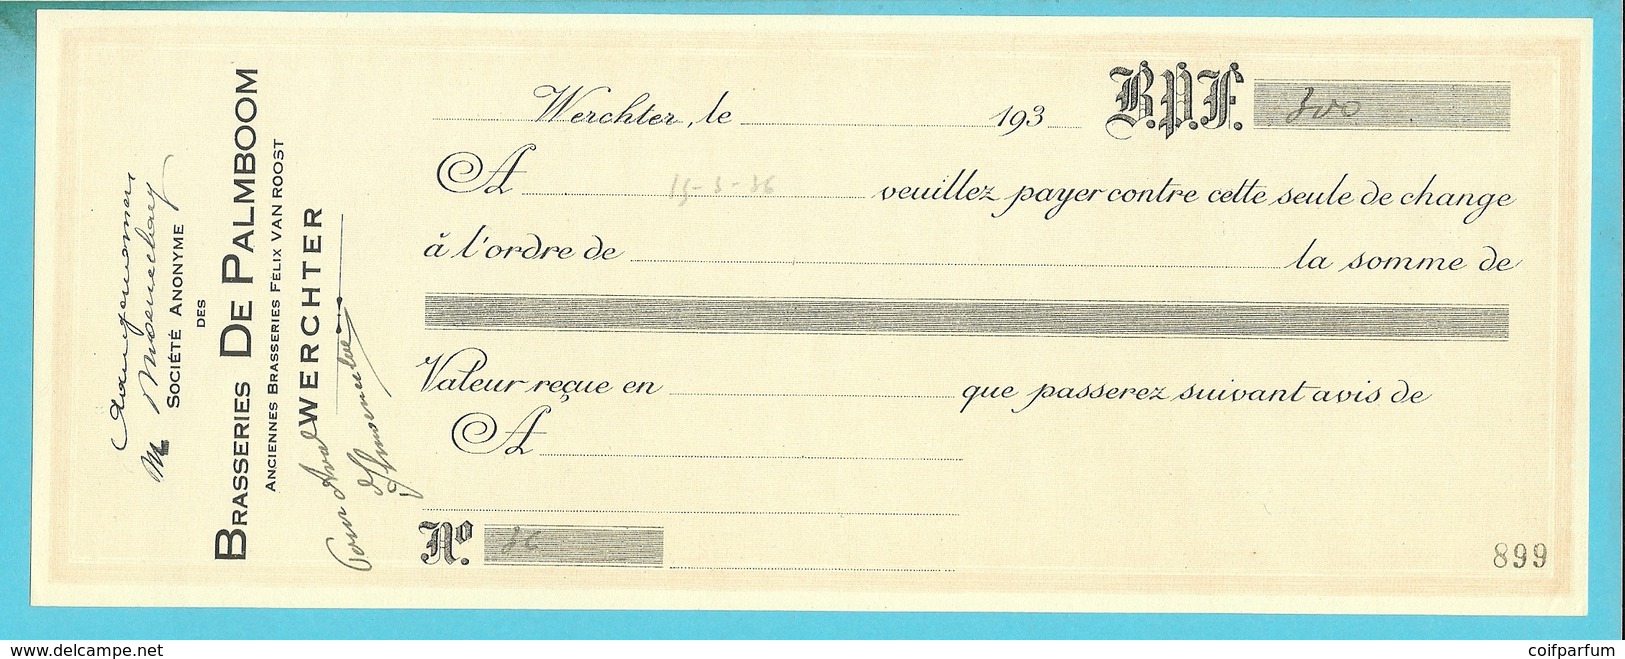 Société Anonyme
des
Brasseries De Palmboom
Anciennes Brasseries Félix Van Roost
Werchter
Pour Aval
Werchter, le 193 B.P.F. 300
A 15-3-36 veuillez payer contre cette seule de change
à l'ordre de la somme de
Valeur reçue en que passerez suivant avis de
A
No. 36
899
www.delcampe.net coifparfum